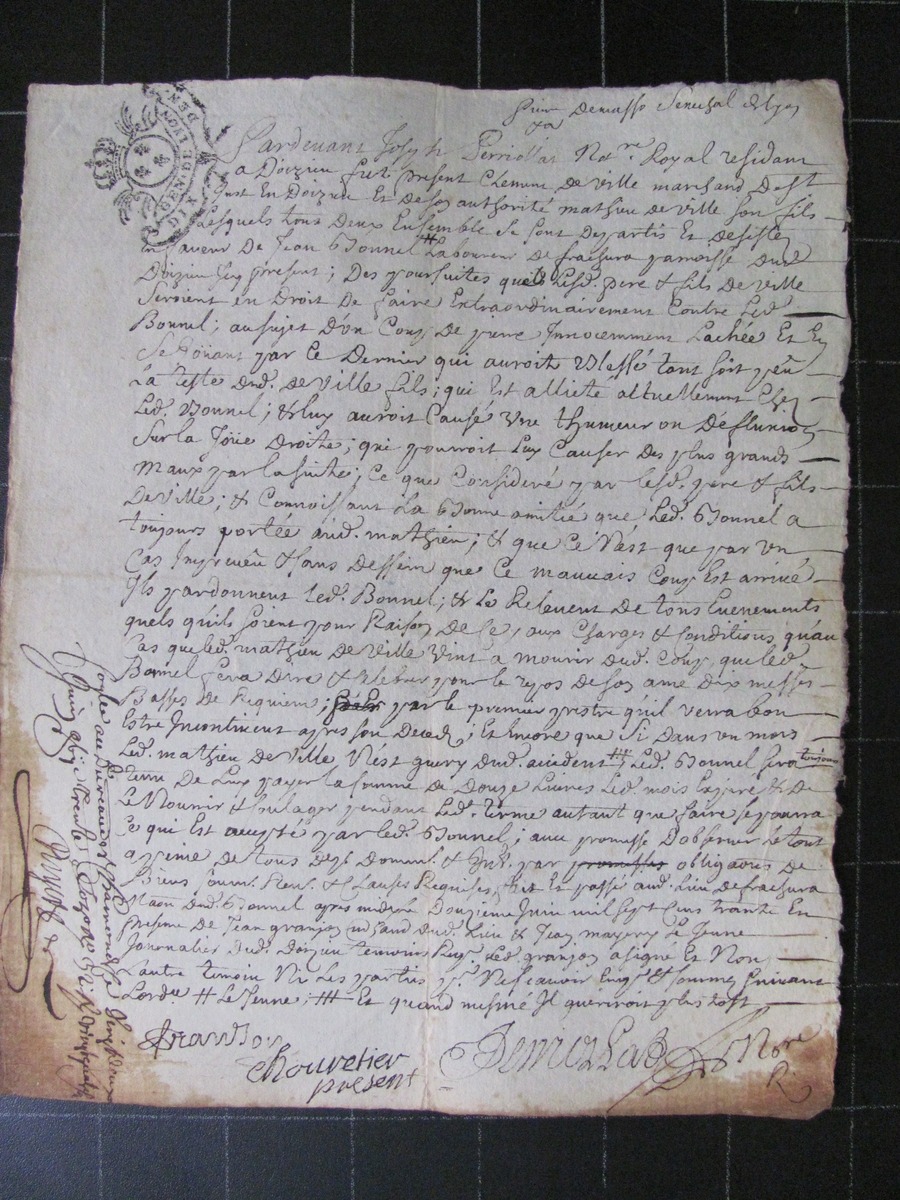 GEN. DE LYON DIX DEN.
Demasso Senechal de Lyon
Pardevant Joseph Perriollat No.re Royal residant
a Doizieu fut present Clemant De ville marchand De St
Just En Doizieu Et De son authorité mathieu de ville son fils
Lesquels tous Deux Ensemble se sont Departis Et desistes
En faveur De Jean Bonnel # Laboureur De fraisura parroisse dud.
Doizieu Icy present; Des poursuites quels Lesd. pere & fils De ville
Seroient en Droit De faire Extraordinairement Contre Led.
Bonnel; au sujet D'un Coup De pierre Innocemment Lachée Et En
Se Joüant par Ce Dernier qui auroit Blessé tant soit peu
La teste dud. De ville fils; qui Est allicté actuellement Chez
Led. Bonnel; & luy auroit Causé une thumeur ou Defluxion
Sur la Joüe Droite; qui pourroit Luy Causer Des plus grands
Maux par la suitte; Ce que Consideré par Lesd. pere & fils
De Ville; & Connoissant La Bonne amitié que Led. Bonnel a
toujours portée aud. mathieu; & que Ce N'est que par un
Cas Impreveu & sans Dessein que Ce mauvais Coup Est arrivé
Ils pardonnent led. Bonnel; & Le Relevent De tous Evenements
quels qu'ils soient pour Raison De Ce, aux Charges & Conditions qu'au
Cas que led. mathieu De Ville Vint a mourir dud. Coup, que led.
Bonnel fera Dire & Celebrer pour le repos de son ame Dix messes
Basses De Requiem; par le premier prestre qu'il verra bon
Estre Incontinent apres son Deced; Et Encore que si Dans un mois
Led. mathieu De Ville N'est guery dud. accident Led. Bonnel sera toujours
tenu De Luy payer la somme De Douze Livres Led. mois Expiré & De
Le Nourrir & soulager pendant Led. terme autant que faire se pourra
Ce qui Est accepté par led. Bonnel; avec promesse D'observer Le tout
a peine de tous Dep. Domm. & Int. par promesses obligaons De
Biens soum. Ren. & Clauses Requises, fait Et passé aud. Lieu De fraisura
Maison Dud. Bonnel apres midy Le Douzieme Juin mil sept Cens trante En
presence De Jean granjon dud. Lieu & Jean mayery Le Jeune
Journalier dud. Doizieu temoins Led. granjon a signé Et Non
L'autre temoin Ni Les parties pr. Ne sçavoir Enq. & sommés suivant
L'ord.ce # Le Jeune; ## Et quand mesme Il gueriroit plus tost
Granjon
Chouvetier
present
Perriollat No.re
R